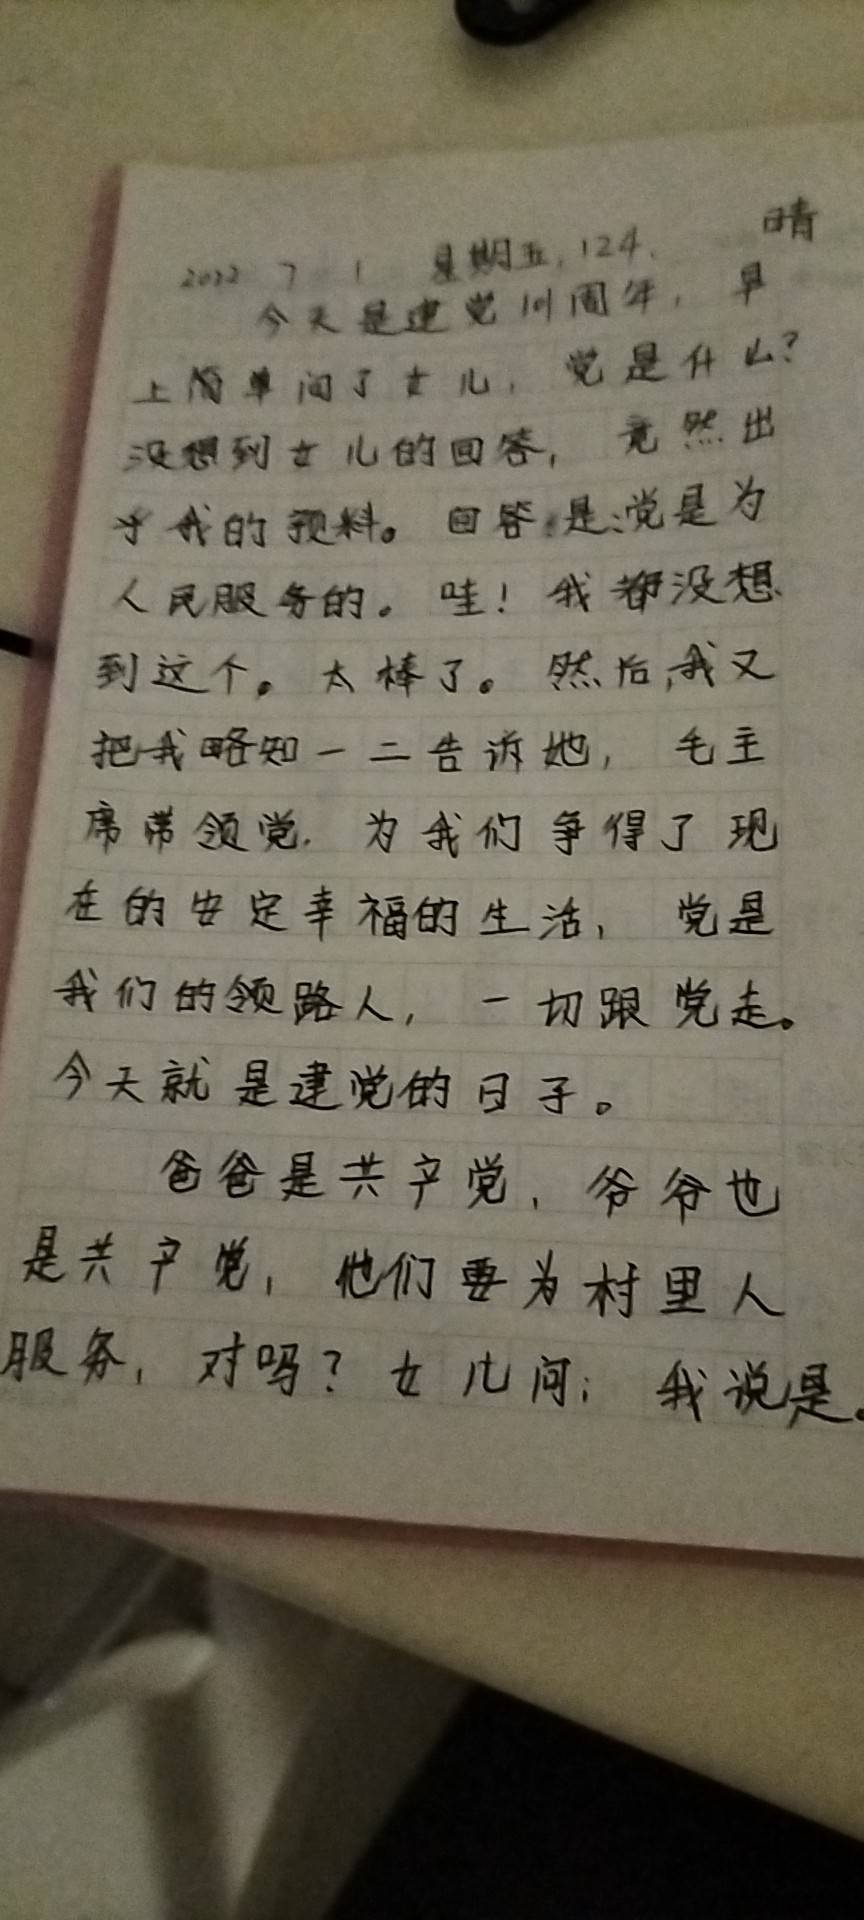 2022 7 1 星期五, 124. 晴
今天是建党101周年, 早
上简单问了女儿, 党是什么?
没想到女儿的回答, 竟然出
乎我的预料。回答:是:党是为
人民服务的。哇! 我都没想
到这个。太棒了。然后,我又
把我略知一二告诉她, 毛主
席带领党. 为我们争得了现
在的安定幸福的生活, 党是
我们的领路人, 一切跟党走。
今天就是建党的日子。
爸爸是共产党, 爷爷也
是共产党, 他们要为村里人
服务, 对吗? 女儿问; 我说是。